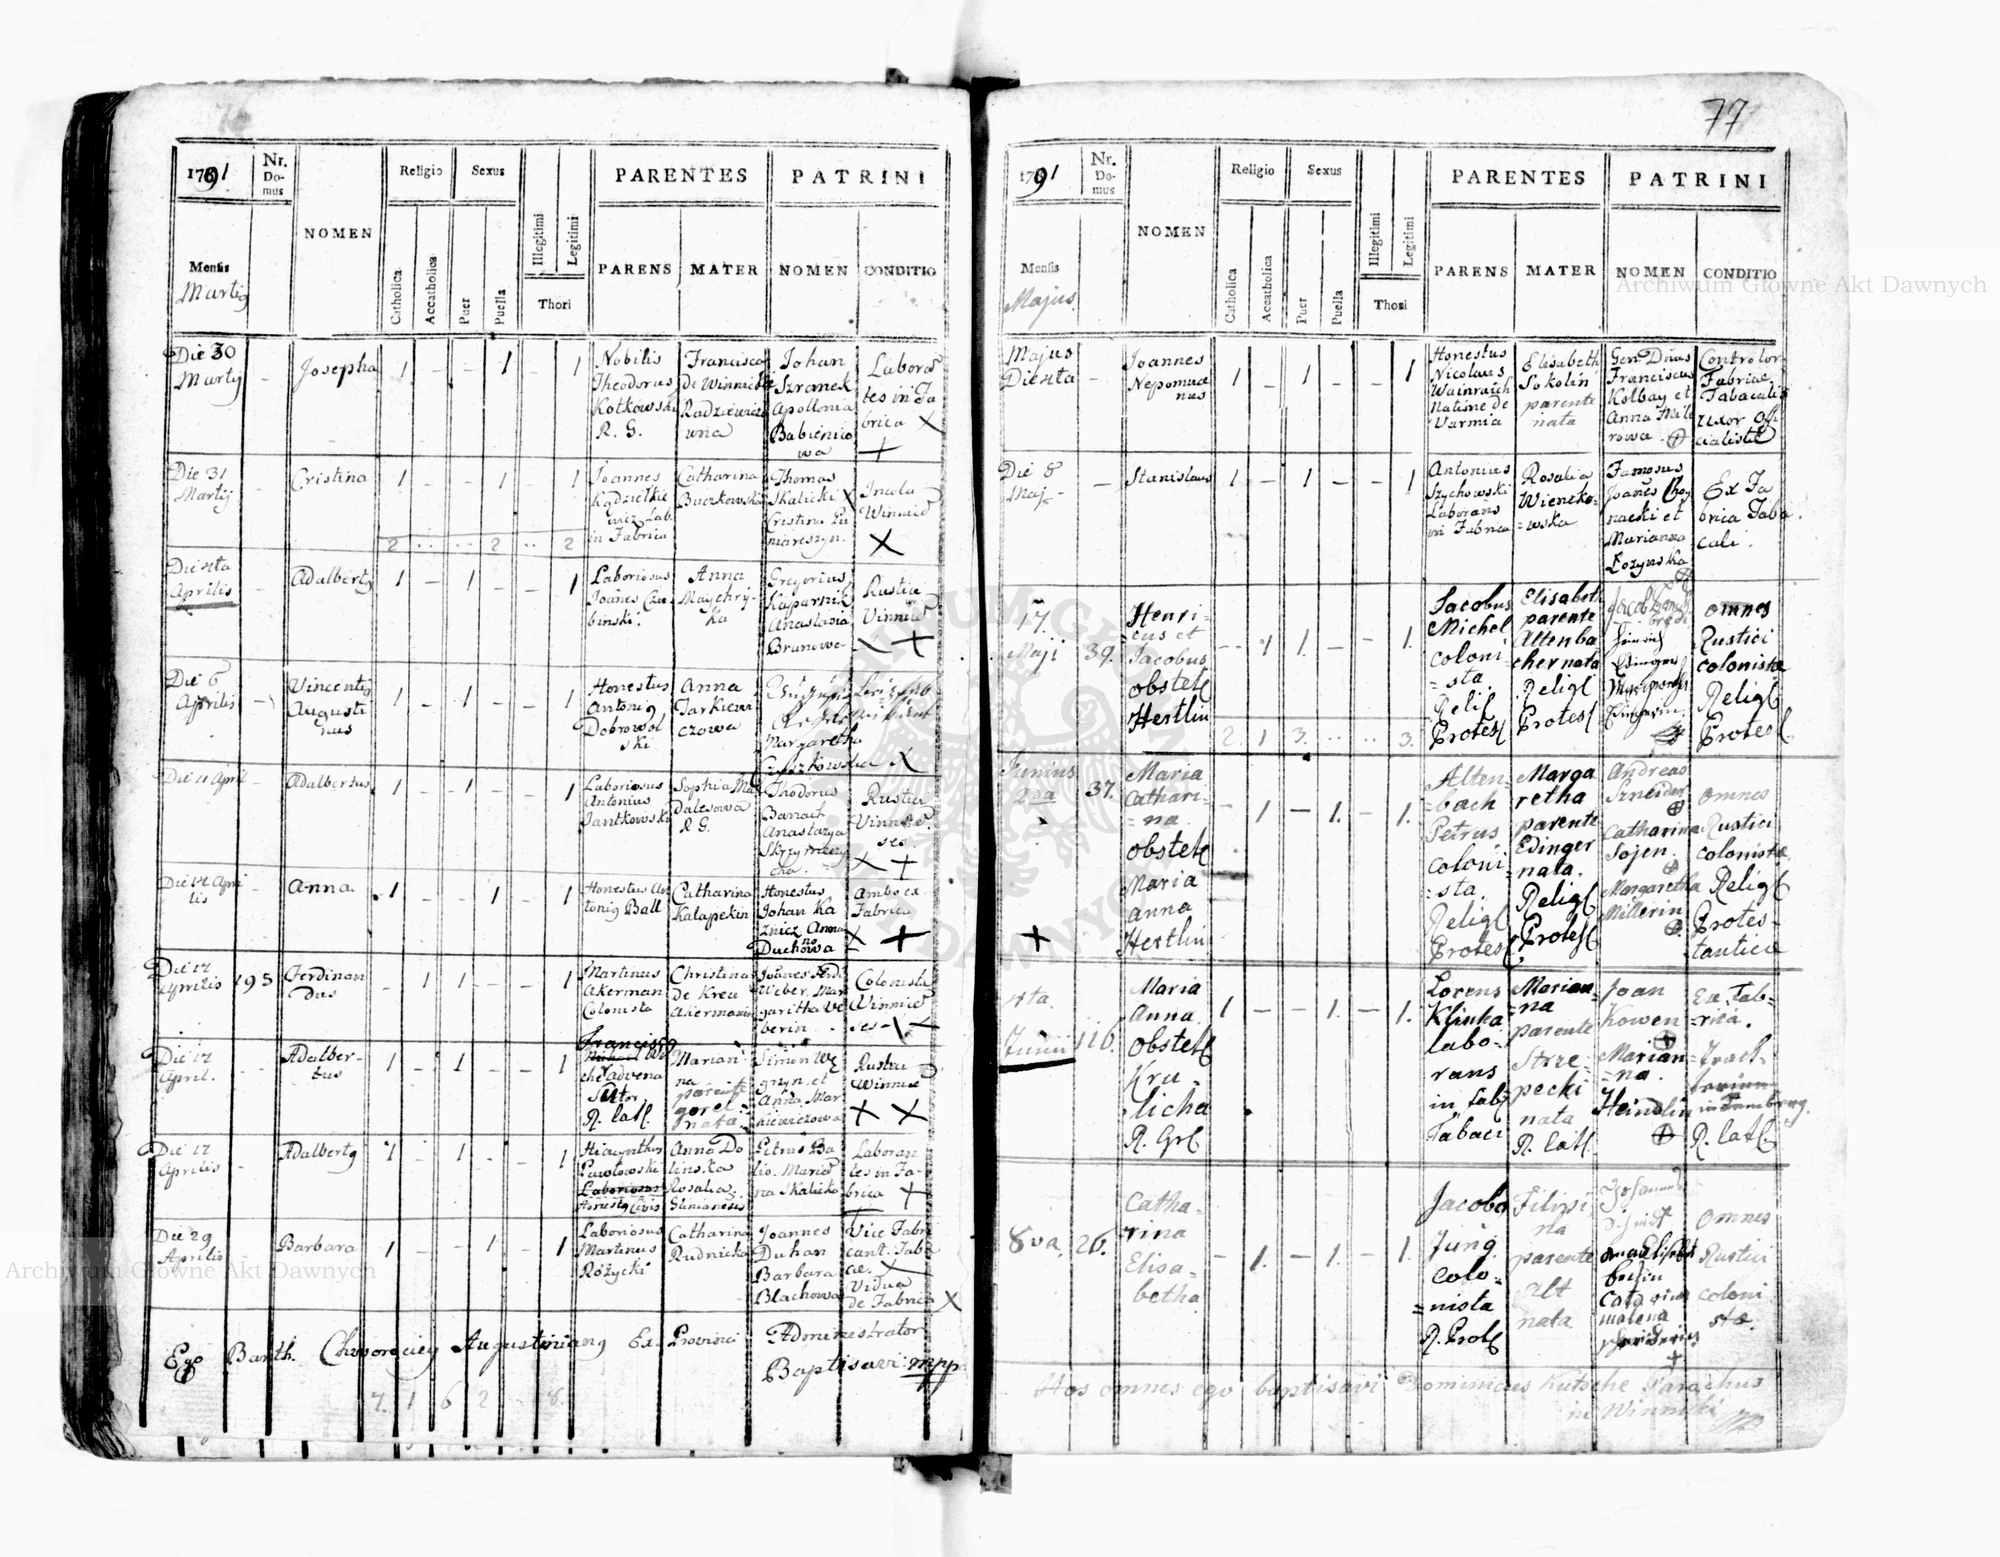 76
1791
Nr.
Do-
mus
NOMEN
Religio
Sexus
PARENTES
PATRINI
Mensis
Martij
Catholica
Accatholica
Puer
Puella
Illegitimi
Legitimi
Thori
PARENS
MATER
NOMEN
CONDITIO
Die 30
Martij
-
Josepha
1 - - 1 1
Nobilis
Theodorus
Kotkowski
R. G.
Francisca
de Winnicki
Radziewicz
wna
Johan
Szramek
Apollonia
Babienico
wa
Labora
tes in Fa
brica X
+
Die 31
Martij
-
Cristina
1 - - 1 1
Joannes
Kądzielke
wicz Lab.
in Fabrica
Catharina
Buczkowska
Thomas
Skalicki X
Cristina Pu
niareszyn.
Incola
Winnic
X
2 .. .. 2 .. 2
Die 4ta
Aprilis
-
Adalbertg
1 - 1 - 1
Laboriosus
Joanes Cze
binski.
Anna
Maychry-
ka
Gregorius
Kaparnik
Anastasia
Brunowa
Rustic
Vinnic
X +
Die 6
Aprilis
-
Vincentig
Augusti
nus
1 - 1 - 1
Honestus
Antonig
Dobrowol
ski
Anna
Tarkiewi
czowa
Margaretha
X
Die 11 April
-
Adalbertus
1 - 1 - 1
Laboriosus
Antonius
Jantkowski
Sophia Ma
dalesowa
R G.
Thodorus
Banach
Anastazya
Skrzymeczy
cha.
Rustici
Vinnic
ses.
X +
Die 14 Apri
lis
-
Anna
1 - - 1 - 1
Honestus An
tonig Ball
Catharina
Kalapekin
Honestus
Johan Ka
znicz Anna
Duchowa
Ambo ex
Fabrica
X +
Die 17
Aprilis
195
Ferdinan
dus
- 1 1 - - 1
Martinus
Akerman
Colonista
Christina
de Kreu
Akermanin
Joanes Ferd:
Weber, Mar
garitha We
berin.
Colonista
Winnic
ses - X
Die 17
April.
-
Adalber-
tus
1 - 1 - 1
Franciscg
che advena
Sutor
R. lat.
Marian
na
parente
gorel
nata
Simon We
gryn. et
Anna Mar
kiewiczowa
Rustici
Winnic
X X
Die 17
Aprilis
-
Adalbertg
1 - 1 - 1
Hiacynthus
Pawłowski
Laboriosus
Honestg Civis
Anna Do
linska
Rosalia
Glinianesis
Petrus Ba
lio. Maria
na Skalicka
Laboran
tes in Fa-
brica +
Die 29
Aprilis
-
Barbara
1 - - 1 - 1
Laboriosus
Martinus
Różycki
Catharina
Rudnicka
Joannes
Duhan
Barbara
Blachowa
Vice Fabri
cant. Taba
cae. X
Vidua
de Fabrica X
Ego Barth. Chworaciey Augustiniang Ex Provinci Administrator
Baptisavi mpp
7. 1 6 2 8.
77
1791
Nr.
Do-
mus
NOMEN
Religio
Sexus
PARENTES
PATRINI
Mensis
Majus.
Catholica
Accatholica
Puer
Puella
Illegitimi
Legitimi
Thori
PARENS
MATER
NOMEN
CONDITIO
Majus
Die 4ta
-
Joannes
Nepomuce
nus
1 - 1 - - 1
Honestus
Nicolaus
Wainraich
Natione de
Varmia
Elisabeth
Sokolin
parente
nata
Gen: Dnus
Franciscus
Kolbay et
Anna Hile
rowa.
Controlor
Fabricae
Tabacalis
uxor Offi
cialiste
Die 8
Maj
-
Stanislaus
1 - 1 - - 1
Antonius
Szychowski
Laborans
in Fabrica
Rosalia
Wieneko=
=wska
Famosus
Joanes Choy
nacki et
Marianna
Łozynska
Ex Fa
brica Taba
cali.
17.
Maji
39.
Henri-
cus et
Jacobus
obstet
Hertlin
- 1 1. - 1.
Jacobus
Michel
coloni
=sta
Reli
Protes
Elisabeth
parente
Altenba
cher nata
Religi
Protes
omnes
Rustici
colonistæ
Relig
Protes
2. 1 3. .. .. 3.
Junius
2da
37.
Maria
Cathari=
=na.
obstet
Maria
anna
Hertlin
+
- 1 - 1. - 1.
Alten=
=bach
Petrus
coloni
=sta.
Religi
Protes
Marga
retha
parente
Edinger
nata.
Religi
Protes
Andreas
Szneider
Catharina
Sojen
Margaretha
Millerin
omnes
Rustici
colonistæ
Religi
Protes-
tanticæ
4ta.
Junii
116.
Maria
Anna
obstet
Kru=
licha
R. Gr.
1 - - 1. - 1.
Lorens
Klinka
labo-
rans
in fab
Tabaci
Marian=
=na
parente
Strze=
pecki
nata
R. lat.
Joan
Kowen
Marian
=na.
Heindlin
Ex Fab=
=rica.
R. lat.
8va.
26.
Catha-
rina
Elisa-
betha
- 1. - 1. - 1.
Jacobg
Jung
colo=
=nista
R. Prot
Filipi
na
parente
Alt
nata
omnes
Rustici
coloni
stæ.
Hos omnes ego baptisavi Dominicus Kutsche Parochus
in Winniki mp
Archiwum Główne Akt Dawnych
Archiwum Główne Akt Dawnych
ARCHIWUM GŁÓWNE AKT DAWNYCH